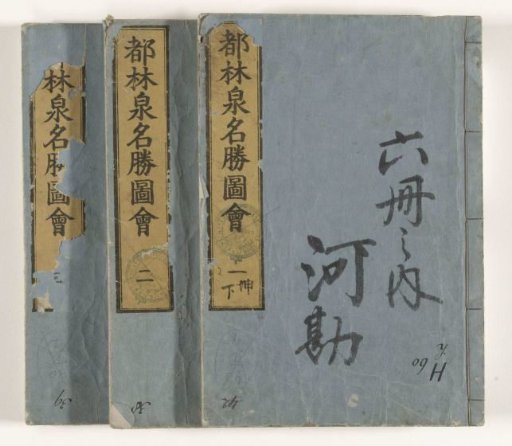 六冊之内
河勘
都林泉名勝圖會
一
下
都林泉名勝圖會
二
林泉名勝圖會
H 60